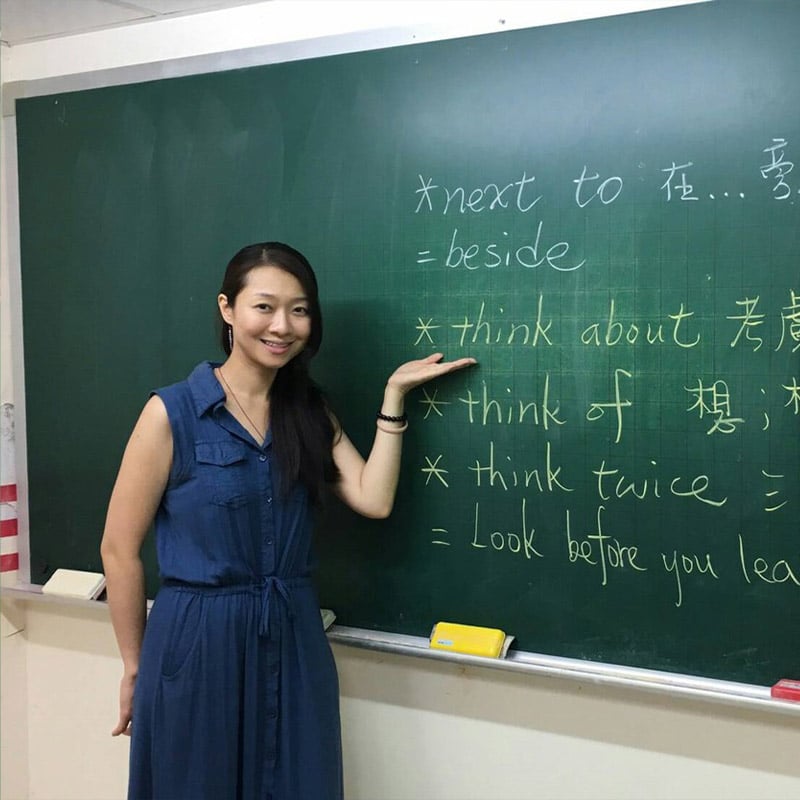 *next to 在...旁
=beside
* think about 考慮
* think of 想;
* think twice 三
= Look before you lea